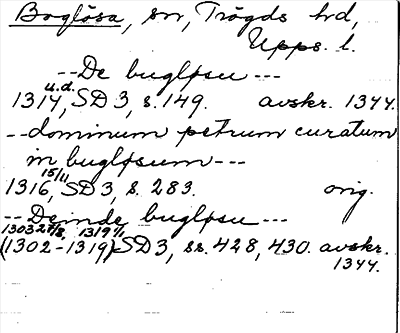 Boglösa, sn, Trögds hd,
Upps. l.
--De bugløsu---
1314 u.d., SD 3, s. 149. avskr. 1344.
--dominum petrum curatum
in bugløsum---
1316 15/11, SD 3, s. 283. orig.
--Deinde bugløsu---
1303 27/8 1319 1/1
(1302-1319) SD 3, ss. 428, 430. avskr.
1344.